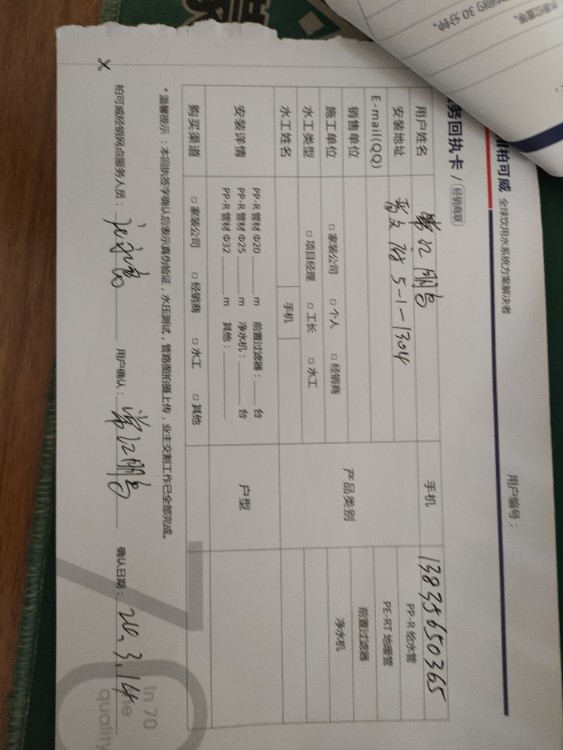 柏可威 全球饮用水系统方案解决者
务回执卡 / 经销商联
用户编号：
用户姓名 常江鹏
手机 13835650365
安装地址 5-1-1304
E-mail(QQ)
销售单位
施工单位 □ 家装公司 □ 个人 □ 经销商
水工类型 □ 项目经理 □ 工长 □ 水工
水工姓名 手机
产品类别
PP-R 给水管
PE-RT 地暖管
前置过滤器
净水机
安装详情
PP-R 管材 Φ20 ____ m 前置过滤器：____ 台
PP-R 管材 Φ25 ____ m 净水机：____ 台
PP-R 管材 Φ32 ____ m 其他：____
户型
购买渠道 □ 家装公司 □ 经销商 □ 水工 □ 其他
*温馨提示：本回执签字确认后表示真伪验证，水压测试，管路图拍摄上传，业主交割工作已全部完成。
柏可威经销网点服务人员：
用户确认：常江鹏
确认日期：20.3.14
In 70
the
quality
的 30 分钟。